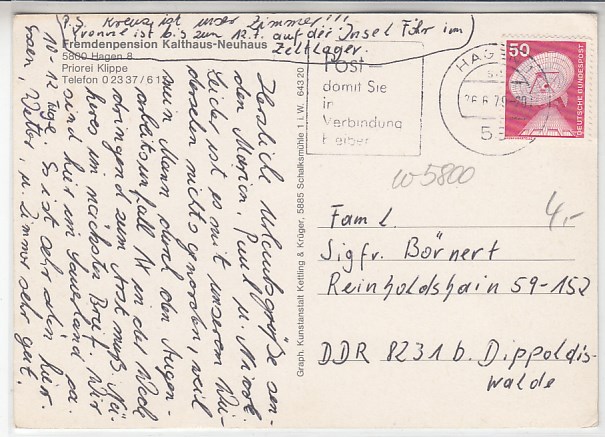 P.S. Kreuz ist unser Zimmer!!!
Yvonne ist bis zum 12.7. auf der Insel Föhr im
Zeltlager.
Fremdenpension Kalthaus-Neuhaus
5800 Hagen 8
Priorei Klippe
Telefon 0 23 37 / 6 1
Herzliche Urlaubsgrüße sen-
den Marion, Paul u. Nicole.
Leider ist es mit unserem Wie-
dersehen nichts geworden, weil
mein Mann durch den Augen-
arbeitsunfall 1x in der Woch
dringend zum Arzt muß. Nä-
heres im nächsten Brief. Wir
sind hier im Sauerland ca.
10-12 Tage. Es ist sehr schön hier.
Essen, Wetter, u. Zimmer sehr gut.
Graph. Kunstanstalt Kettling & Krüger, 5885 Schalksmühle 1 i. W. 643 20
Post -
damit Sie
in
Verbindung
bleiben
HAGEN
26.6.79
58
50
DEUTSCHE BUNDESPOST
W 5800
4,-
Faml.
Sigfr. Börnert
Reinholdshain 59-152
DDR 8231 b. Dippoldis-
walde